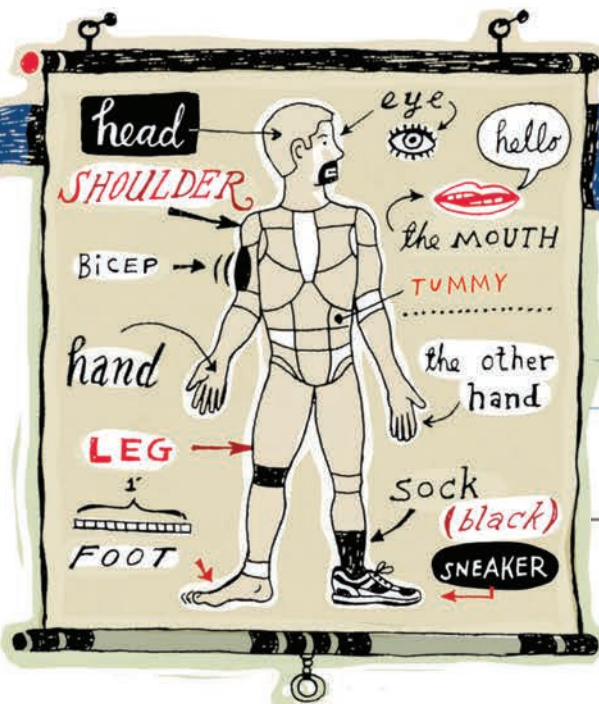 head
eye
hello
SHOULDER
the MOUTH
BiCEP
TUMMY
hand
the other
hand
LEG
1'
sock
(black)
FOOT
SNEAKER